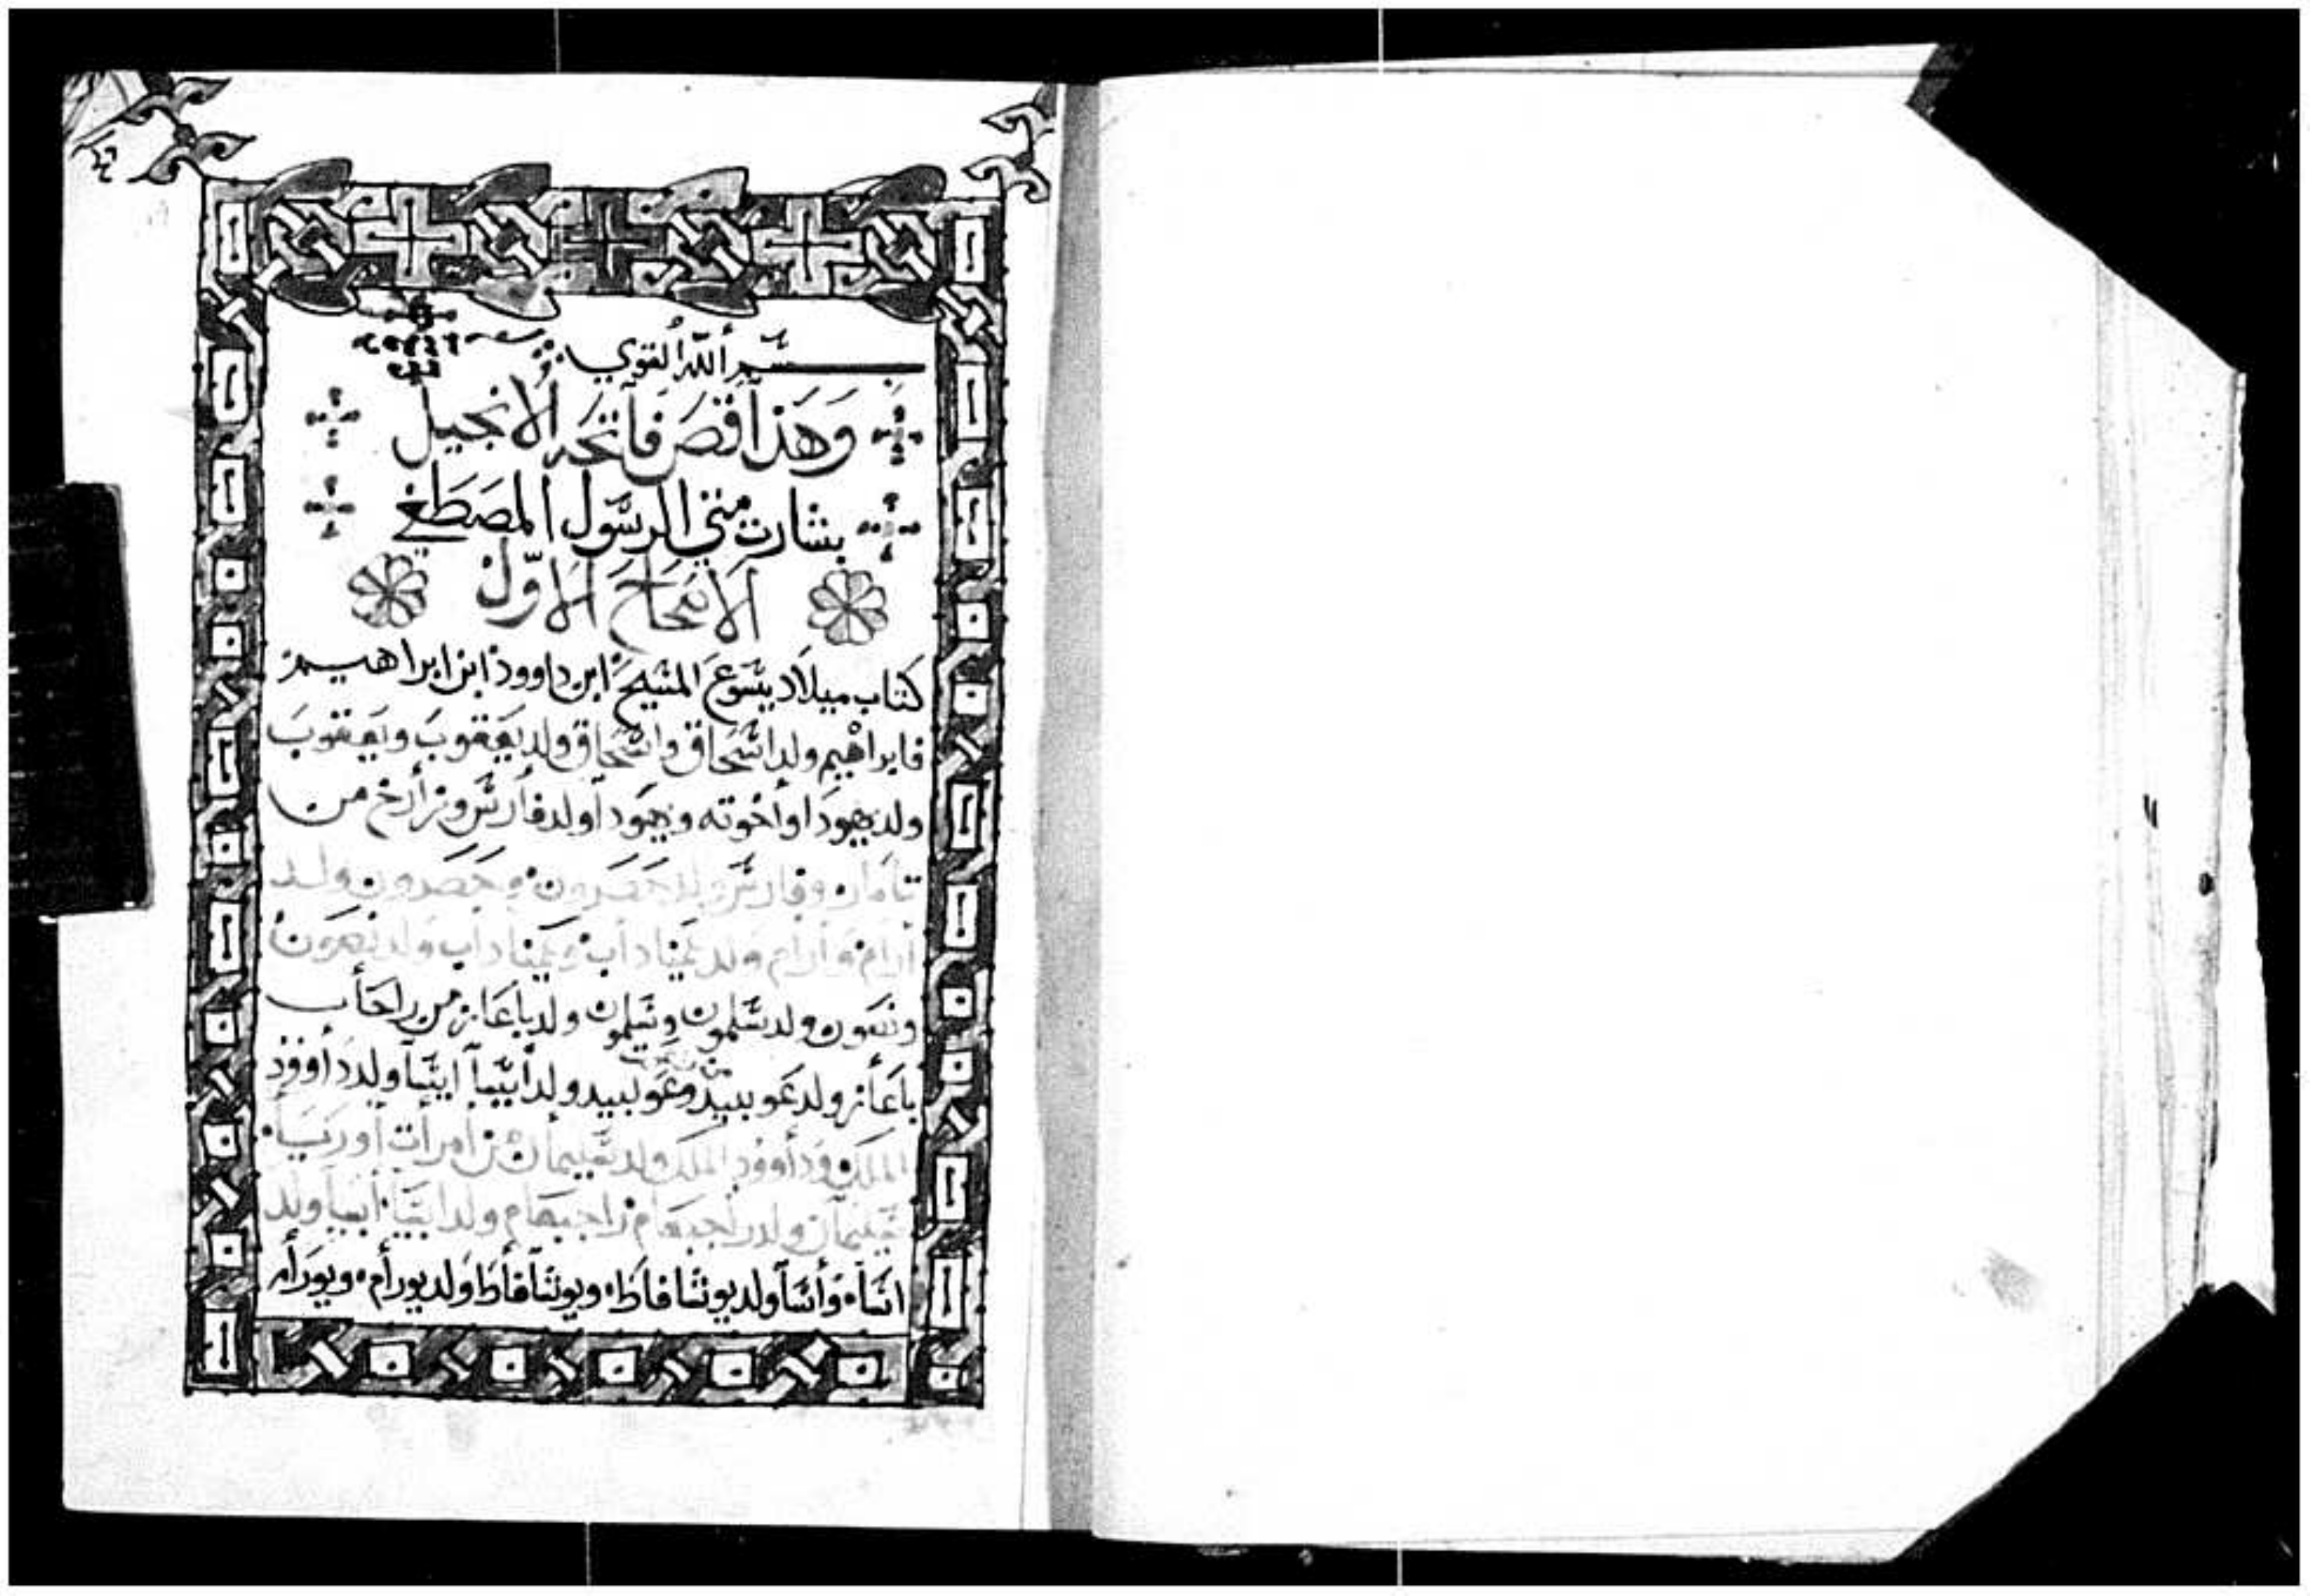 بسم الله القوي
وهذا قص فاتحه الانجيل
بشارت متي الرسول المصطفي
الاصحاح الاول
كتاب ميلاد يسوع المسيح ابن داوود ابن ابراهيم
فابراهيم ولد اسحاق واسحاق ولد يعقوب ويعقوب
ولد يهودا واخوته ويهودا ولد فارس وزارخ من
تامار وفارس ولد حصرون وحصرون ولد
ارام وارام ولد عميناداب وعميناداب ولد نحسون
ونحسون ولد سلمون وسلمون ولد باعاز من راحاب
باعاز ولد عوبييد وعوبييد ولد ايسا ايسا ولد داوود
الملك وداوود الملك ولد سليمان من امرات اوريا
سليمان ولد راجبعام راجبعام ولد ابيا ابيا ولد
اسا واسا ولد يوشافاظ ويوشافاظ ولد يورام ويورام